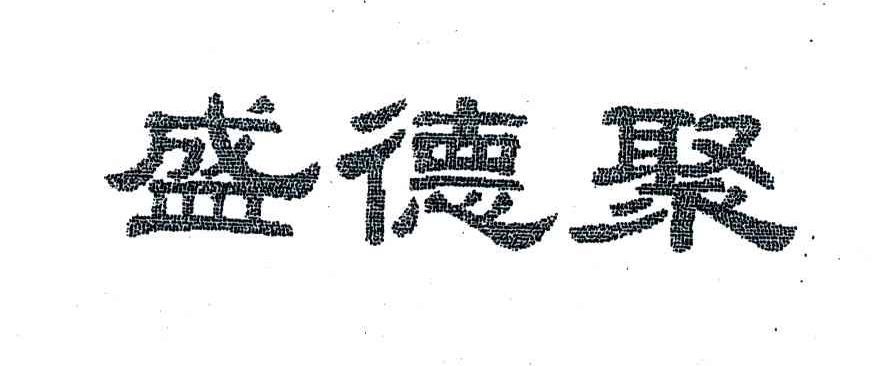 盛德聚